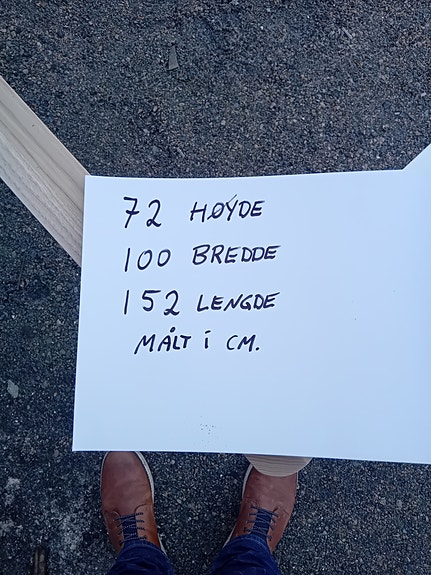 72 HØYDE
100 BREDDE
152 LENGDE
MÅLT i CM.